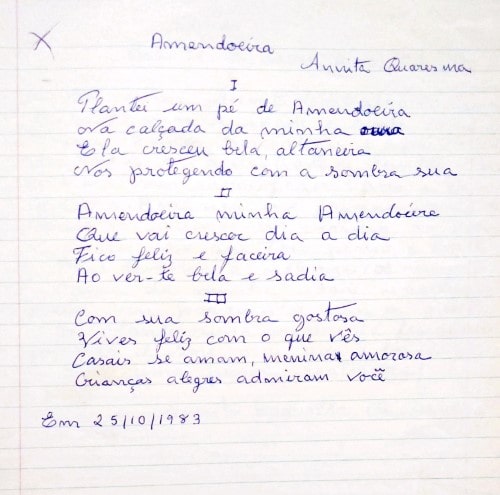 X
Amendoeira
Anvita Quaresma
I
Plantei um pé de Amendoeira
Na calçada da minha rua
Ela cresceu bela, altaneira
Nos protegendo com a sombra sua
II
Amendoeira minha Amendoeira
Que vai crescer dia a dia
Fico feliz e faceira
Ao ver-te bela e sadia
III
Com sua sombra gostosa
Vives feliz com o que vês
Casais se amam, menina amorosa
Crianças alegres admiram você
Em 25/10/1983